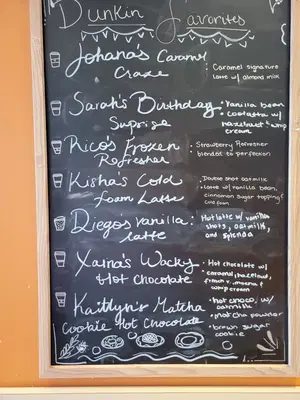 Dunkin Favorites
Johana's Caramel
Craze
· Caramel signature
latte w/ almond milk
Sarah's Birthday
Suprise
· Vanilla bean
coolatta w/
hazelnut & whip
cream
Rico's Frozen
Refresher
· Strawberry Refresher
blended to perfection
Kisha's Cold
Foam Latte
Double shot oatmilk
· latte w/ vanilla bean,
cinnamon sugar topping &
cold foam
Diego's Vanilla:
latte
Hot latte w/ vanilla
shots, oatmilk,
and splenda
Xaina's Wacky
Hot Chocolate
· Hot chocolate w/
caramel, hazelnut,
french v., mocha &
whip cream
Kaitlyn's Matcha
Cookie Hot Chocolate
· hot choco. w/
oatmilk
· matcha powder
· brown sugar
cookie